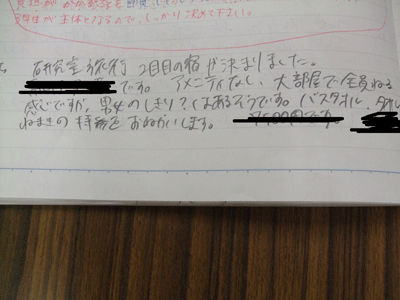 が主体となるので、しっかり決めて下さい。
研究室旅行 2日目の宿が決まりました。
です。アメニティなし、大部屋で全員ねる
感じですが、男女のしきり?はあるそうです。バスタオル、タオル
ねまきの持参をおねがいします。